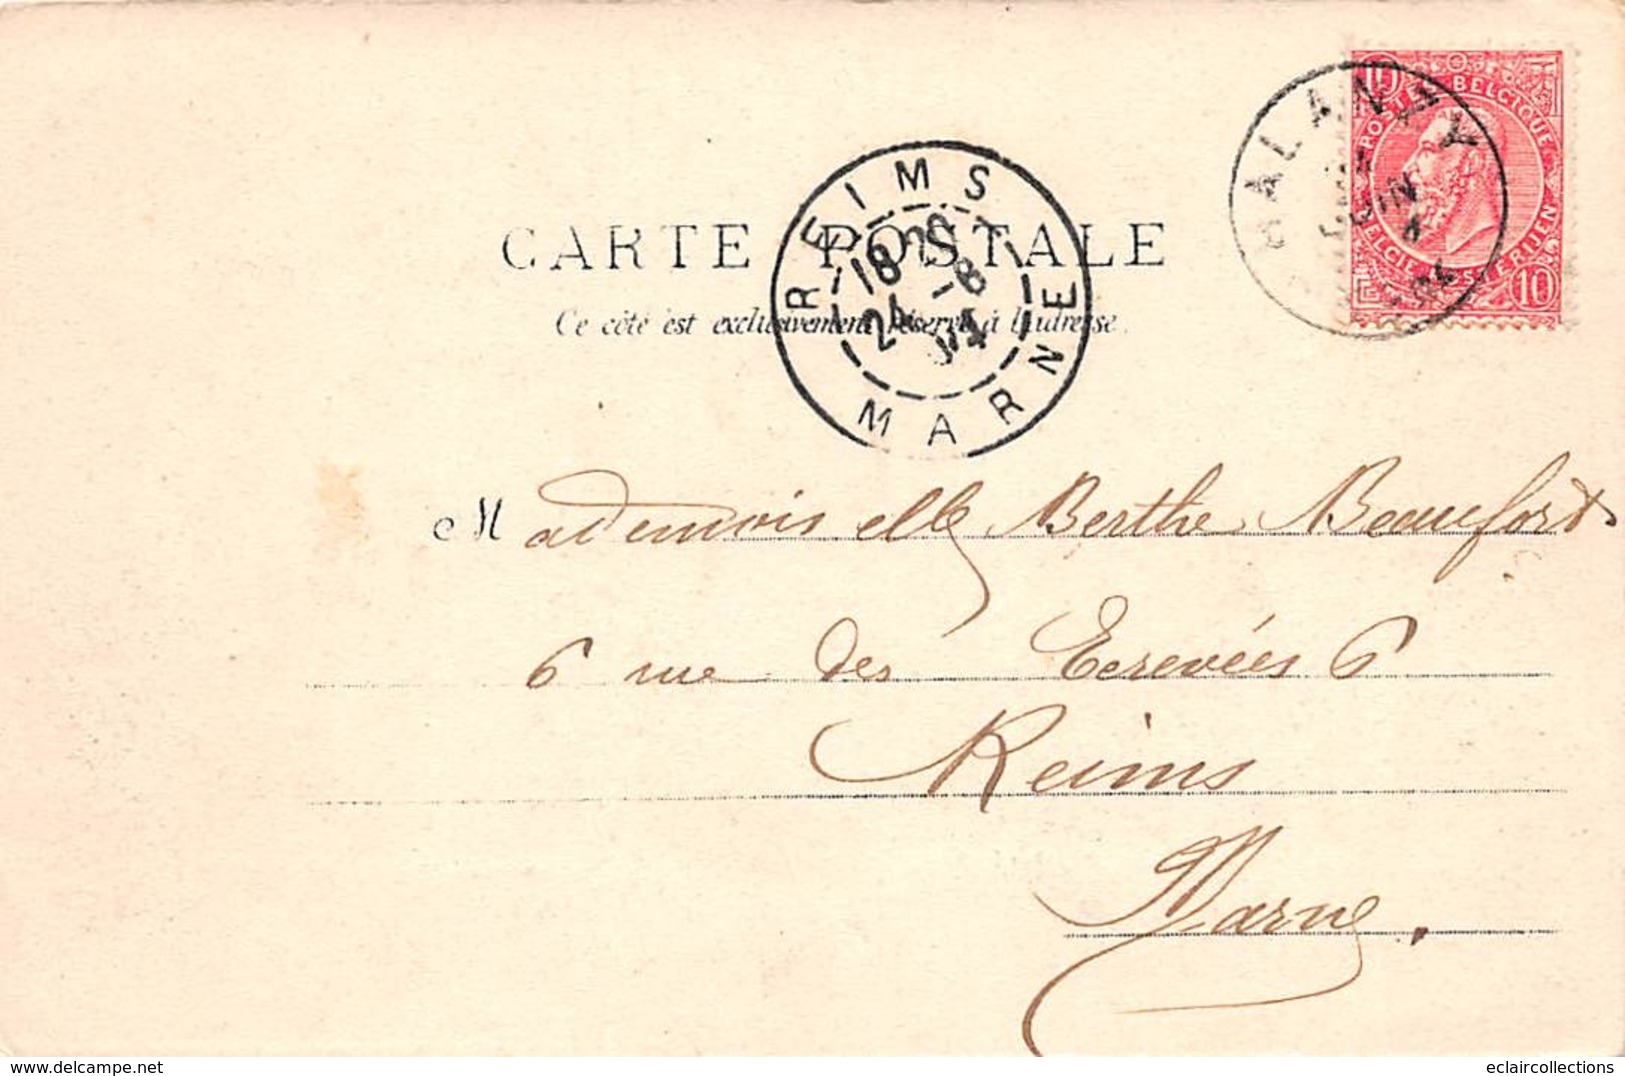 10 POSTES BELGIQUE
BELGIE POSTERIJEN 10
HALANZY
JUIN
REIMS
18 20
24 -8
04
MARNE
CARTE POSTALE
Ce côté est exclusivement réservé à l'adresse.
Mademoiselle Berthe Beaufort
6 rue des Ecrevées 6
Reims
Marne.
delcampe.net
eclaircollections